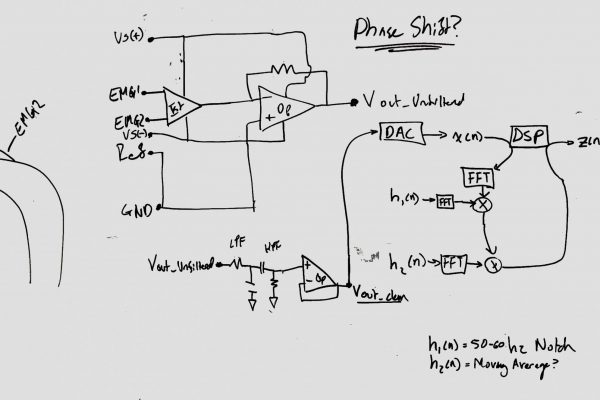 Phase Shift?
VS(+)
EMG1
EMG2
VS(-)
Ref
GND
EMG2
Inst
Op
Vout_Unfiltered
DAC
x(n)
DSP
z(n)
FFT
h₁(n)
FFT
X
h₂(n)
FFT
X
LPF
HPF
Vout_Unfiltered
Op
Vout_clean
h₁(n) = 50-60 hz Notch
h₂(n) = Moving Average?